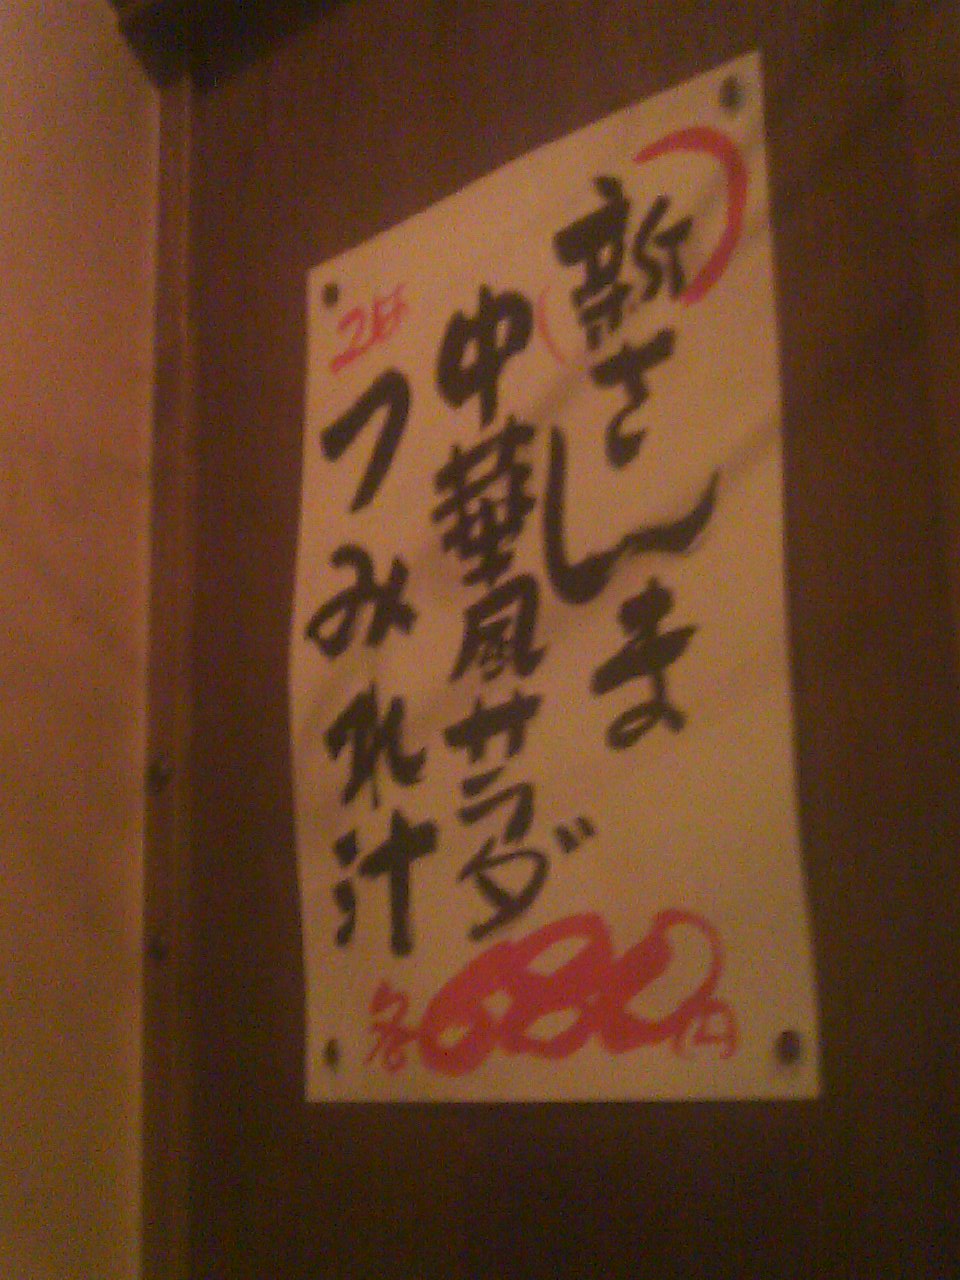 新さんま
中華風サラダ
つみれ汁
各680円